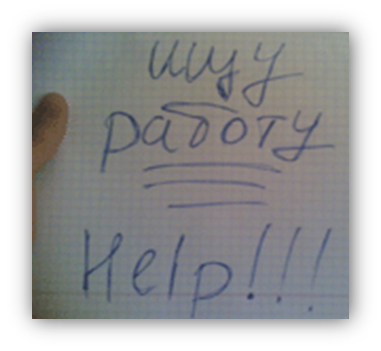 ищу
работу
Help!!!